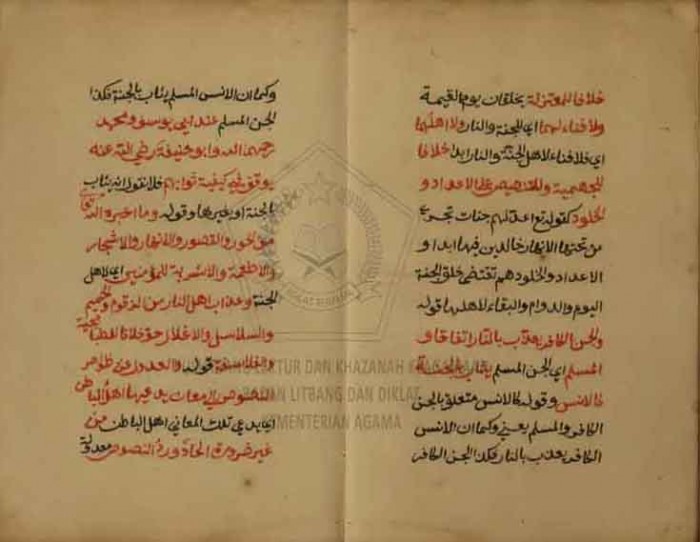 خلافا للمعتزلة يخلقان يوم القيمة
ولا فناء لهما اي للجنة والنار ولا اهلهما
اي خلافناء لاهل الجنة والنار ابدا خلافا
للجهمية وللتنصيص على الاعداد و
الخلود كقوله تع اعد لهم جنات تجري
من تحتها الانهار خالدين فيها ابدا و
الاعداد والخلود هم تقتضى خلق الجنة
اليوم والدوام والبقاء لاهلهما قوله
والجن الكافر يعذب بالنار اتفاقا و
المسلم اي الجن المسلم يثاب بالجنة
كالانس وقوله كالانس متعلق بالجن
الكافر والمسلم يعني وكما ان الانس
الكافر يعذب بالنار فكذا الجن الكافر
وكما ان الانس المسلم يثاب بالجنة فكذا
الجن المسلم عند ابي يوسف ومحمد
رحمهما الله وابو حنيفة رضي الله عنه
يوقف في كيفية ثوابهم خلا نقول انه يثاب
بالجنة او بغيرها وقوله وما اخبر الله تعالى
من الحور والقصور والانهار والاشجار
والاطعمة والاشربة للمؤمنين اي لاهل
الجنة وعذاب اهل النار من الزقوم والحميم
والسلاسل والاغلال حق خلافا للباطنية
والفلاسفة قوله والعدول عن ظواهر
النصوص الى معان يدعيها اهل الباطن
اي يدعي تلك المعاني اهل الباطن من
غير ضرورة الحاد ورد النصوص
LEKTUR DAN KHAZANAH KEAGAMAAN
BADAN LITBANG DAN DIKLAT
KEMENTERIAN AGAMA